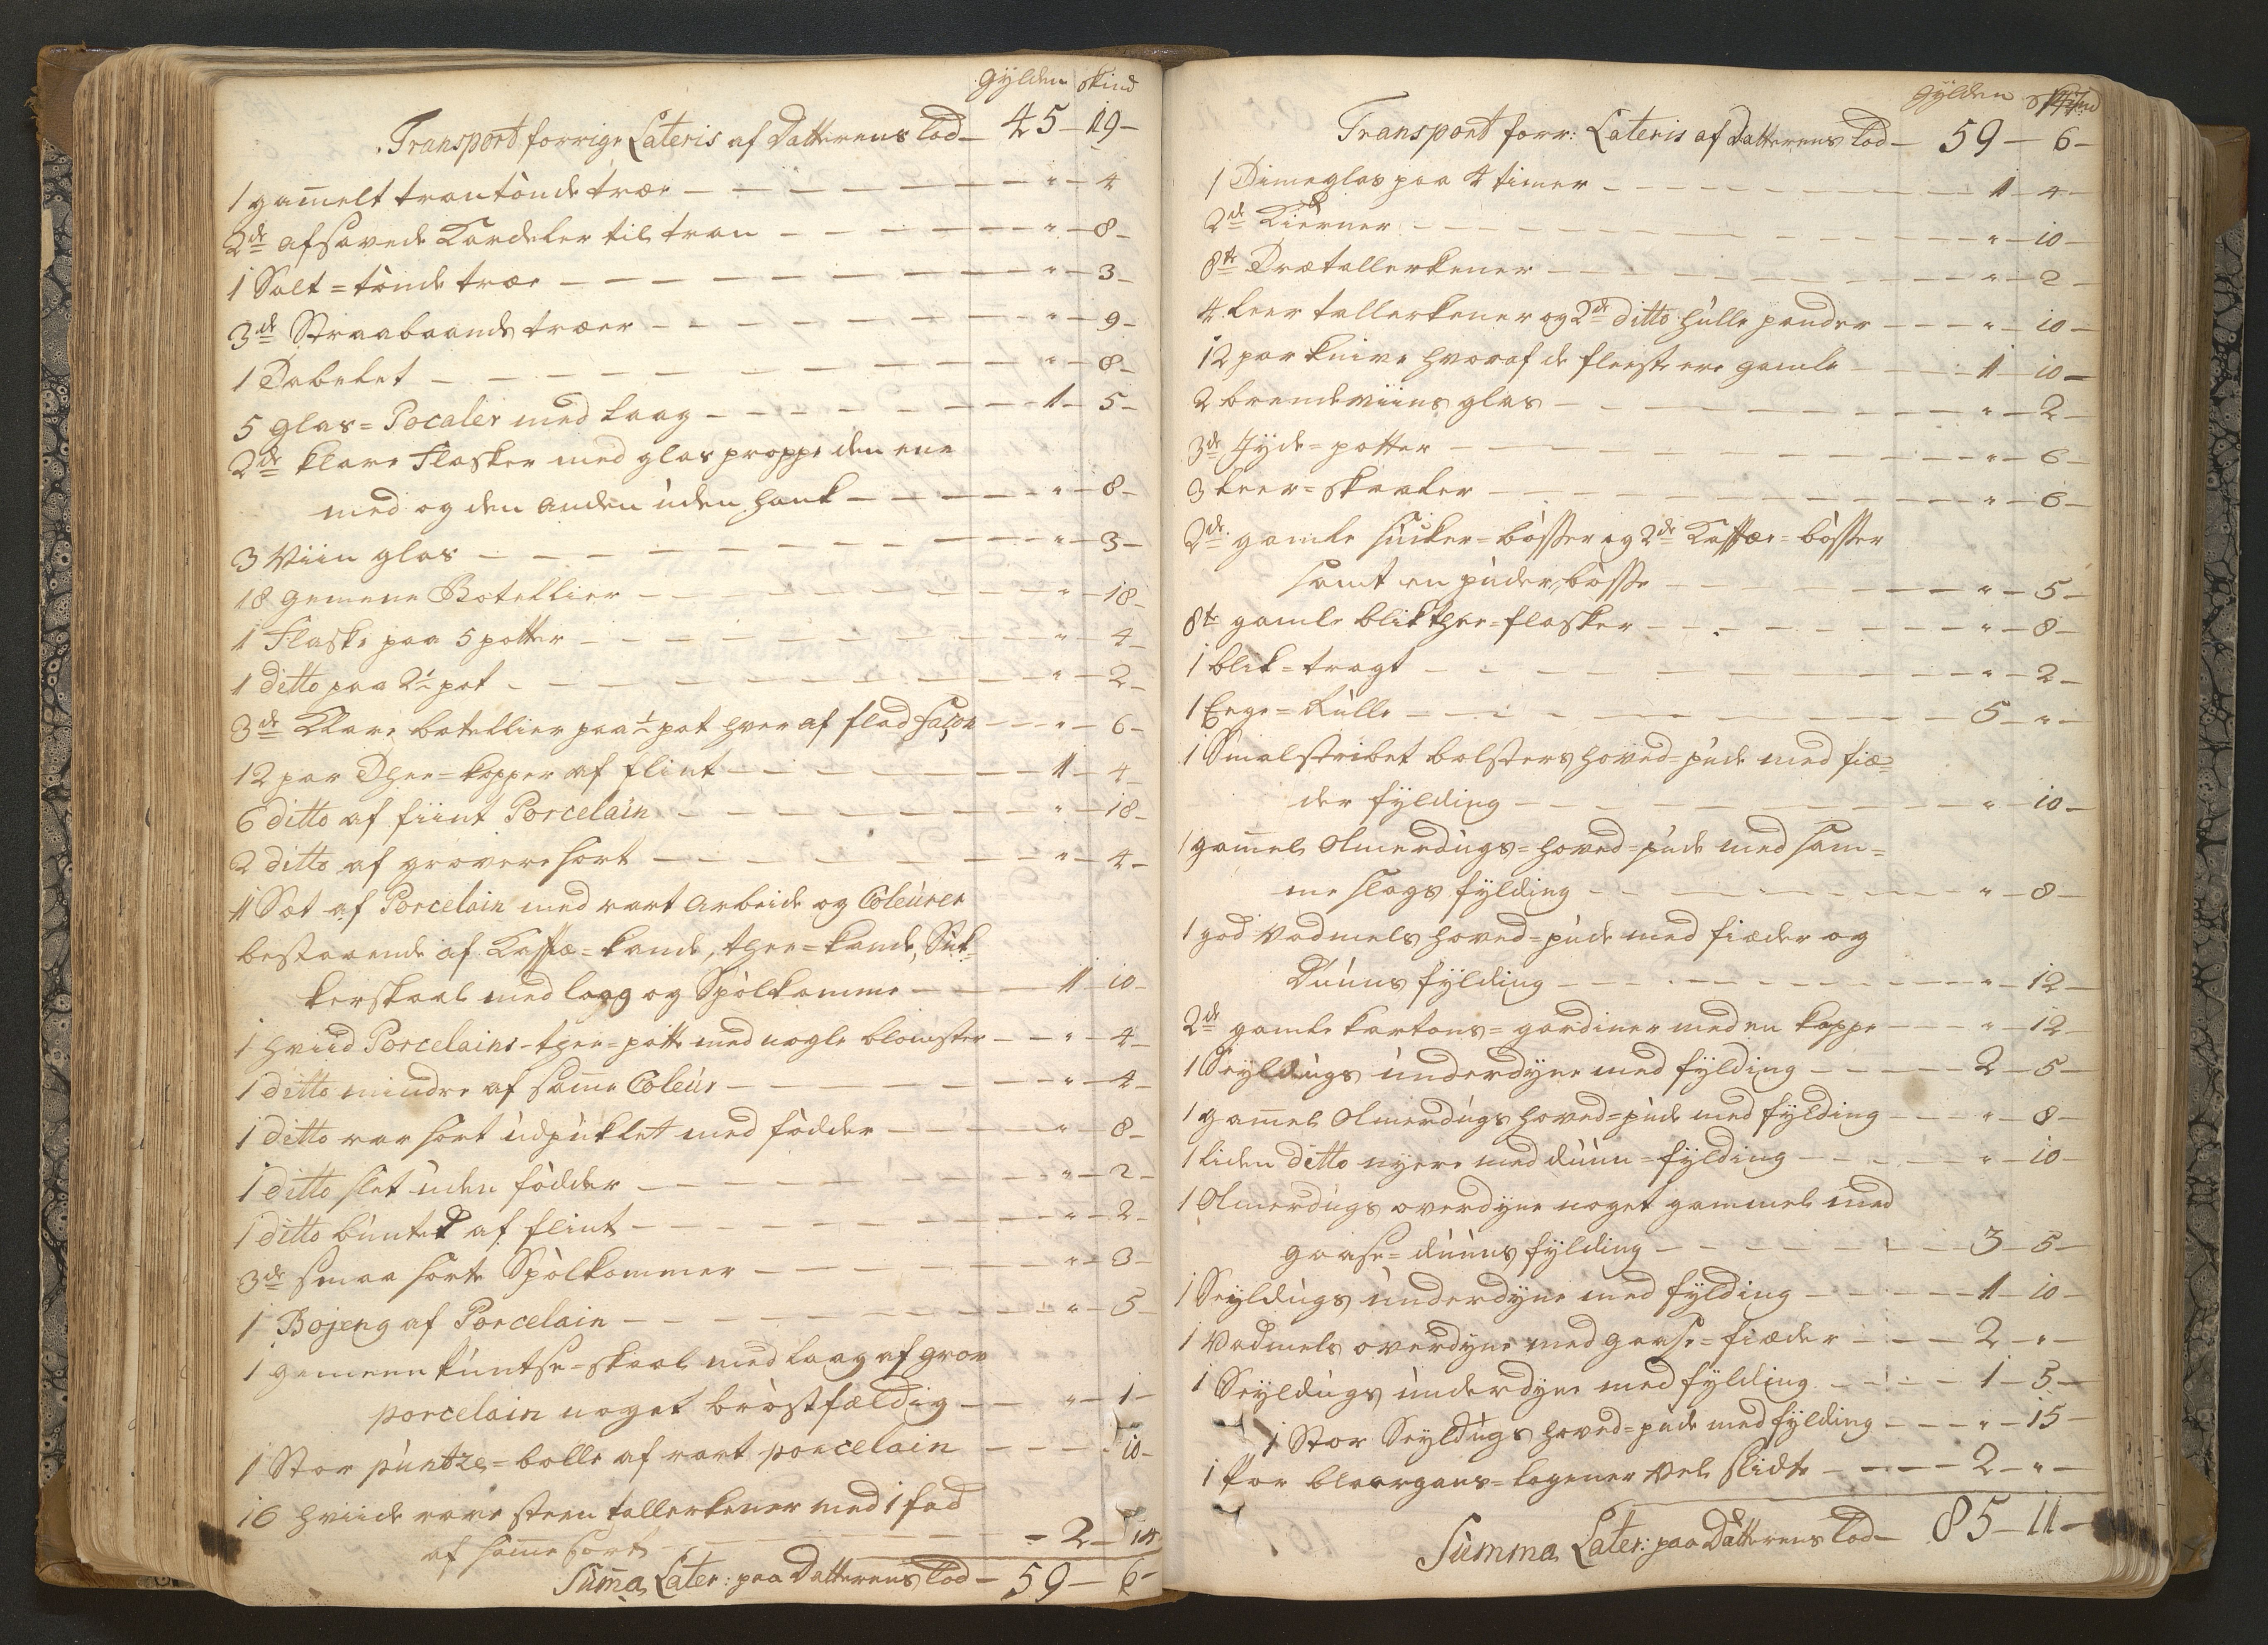 Gylden Skind
Transport forrige Lateris af Datterens Lod — 45 — 19 —
1 gam̄elt trantònde træe — " — 4
2de afsavede Kardeler til tran — " — 8 —
1 Salt=tònde træe — " — 3 —
3de Straabaands træer — " — 9 —
1 Tabelet — " — 8 —
5 glas=Pocaler med Laag — 1 — 5 —
2de klare Flasker med glas proppe den ene
med og den anden ùden hank — " — 8 —
3 Viin glas — " — 3 —
18 gemene Botellier — " — 18 —
1 Flaske paa 5 potter — " — 4 —
1 ditto paa 2 pot — " — 2 —
3de Klare botellier paa ½ pot hver af flad façon — " — 6 —
12 par Thee=kopper af flint — 1 — 4 —
6 ditto af fiint Porcelain — " — 18 —
2 ditto af grovere sort — " — 4 —
1 Sæt af Porcelain med rart arbeide og Coleùrer
bestaaende af Kaffe=kande, thee=kande, Sùk=
kerskaal med laag og Spòlkomme — 1 10 —
1 hviid Porcelains-thee=potte med nogle blomster — " — 4 —
1 ditto mindre af sam̄e Coleùr — " — 4 —
1 ditto rar sort ùdpùklet med fòdder — " — 8 —
1 ditto slet ùden fòdder — " — 2 —
1 ditto bùnted af flint — " — 2 —
3de smaa sorte Spòlkommer — " — 3 —
1 Bojeng af Porcelain — " — 5 —
1 gemeen pùntse=skaal med Laag af grov
porcelain noget bròstfældig — " — 1 —
1 Stor pùntze=bolle af rart porcelain — 10 —
16 hviide rare steen tallerkener med 1 fad
af sam̄e sort — 2 — 10
Sùm̄a Later: paa Datterens Lod — 59 — 6 —
Gylden Skind
Transport forr: Lateris af Datterens Lod — 59 — 6 —
1 Timeglas paa 4 timer — 1 — 4 —
2de Kierner — " — 10 —
8te Trætallerkener — " — 2 —
4 Leer tallerkener og 2de ditto hùlle pander — " — 10 —
12 par knive hvoraf de fleeste ere gamle — 1 — 10 —
2 brendeviins glas — " — 2 —
3de Jyde=potter — " — 6 —
3 Leer=skaaler — " — 6 —
2de gamle sùcker=bòsser og 2de Kaffee=bòsser
samt en pùder, bòsse — " — 5 —
8te gamle blik thee=flasker — " — 8 —
1 blik=tragt — " — 2 —
1 Eege=Rùlle — 5 — " —
1 Smalstribet bolsters hoved=pùde med fiæ=
der fylding — " — 10 —
1 gam̄el Olmerdùgs=hoved=pùde med sam=
me slags fylding — " — 8 —
1 god Vadmels hoved=pùde med fiæder og
Dùùns fylding — " — 12 —
2de gamle kartons=gardiner med en kappe — " — 12 —
1 Seyldùgs ùnderdyne med fylding — 2 — 5 —
1 gam̄el Olmerdùgs hoved=pùde med fylding — " — 8 —
1 Liden ditto nyere med dùùn=fylding — " — 10 —
1 Olmerdùgs overdyne noget gammel med
gaase=dùùns fylding — 3 — 5 —
1 Seyldùgs ùnderdyne med fylding — 1 — 10 —
1 Vadmels overdyne med gaase=fiæder — 2 — " —
1 Seyldùgs ùnderdyne med fylding — 1 — 5 —
1 Stor Seyldùgs hoved=pùde med fylding — " — 15 —
1 Par blaargans=Lagener Vel slidte — 2 — " —
Sùmma Later: paa Datterens Lod — 85 — 11 —